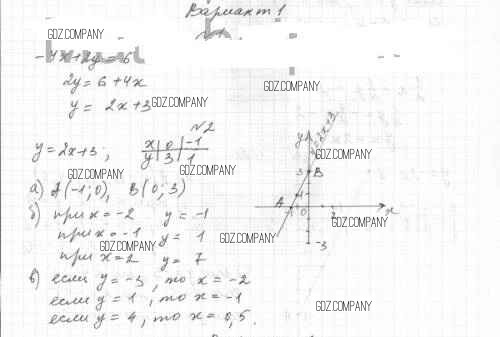 Вариант 1
GDZ.COMPANY
-4x+2y=6
2y = 6+4x
y = 2x+3 GDZ.COMPANY
GDZ.COMPANY
№2
y = 2x+3; x 0 -1
y 3 1
GDZ.COMPANY GDZ.COMPANY
а) A(-1;0), B(0;3)
б) при x=-2 y=-1
при x=-1 y=1
GDZ.COMPANY
при x=2 y=7
в) если y=-3, то x=-2
если y=1, то x=-1
если y=4, то x=0,5.
y
y=2x+3
GDZ.COMPANY
3 B
A
-1 0 x
GDZ.COMPANY
GDZ.COMPANY
-3
GDZ.COMPANY